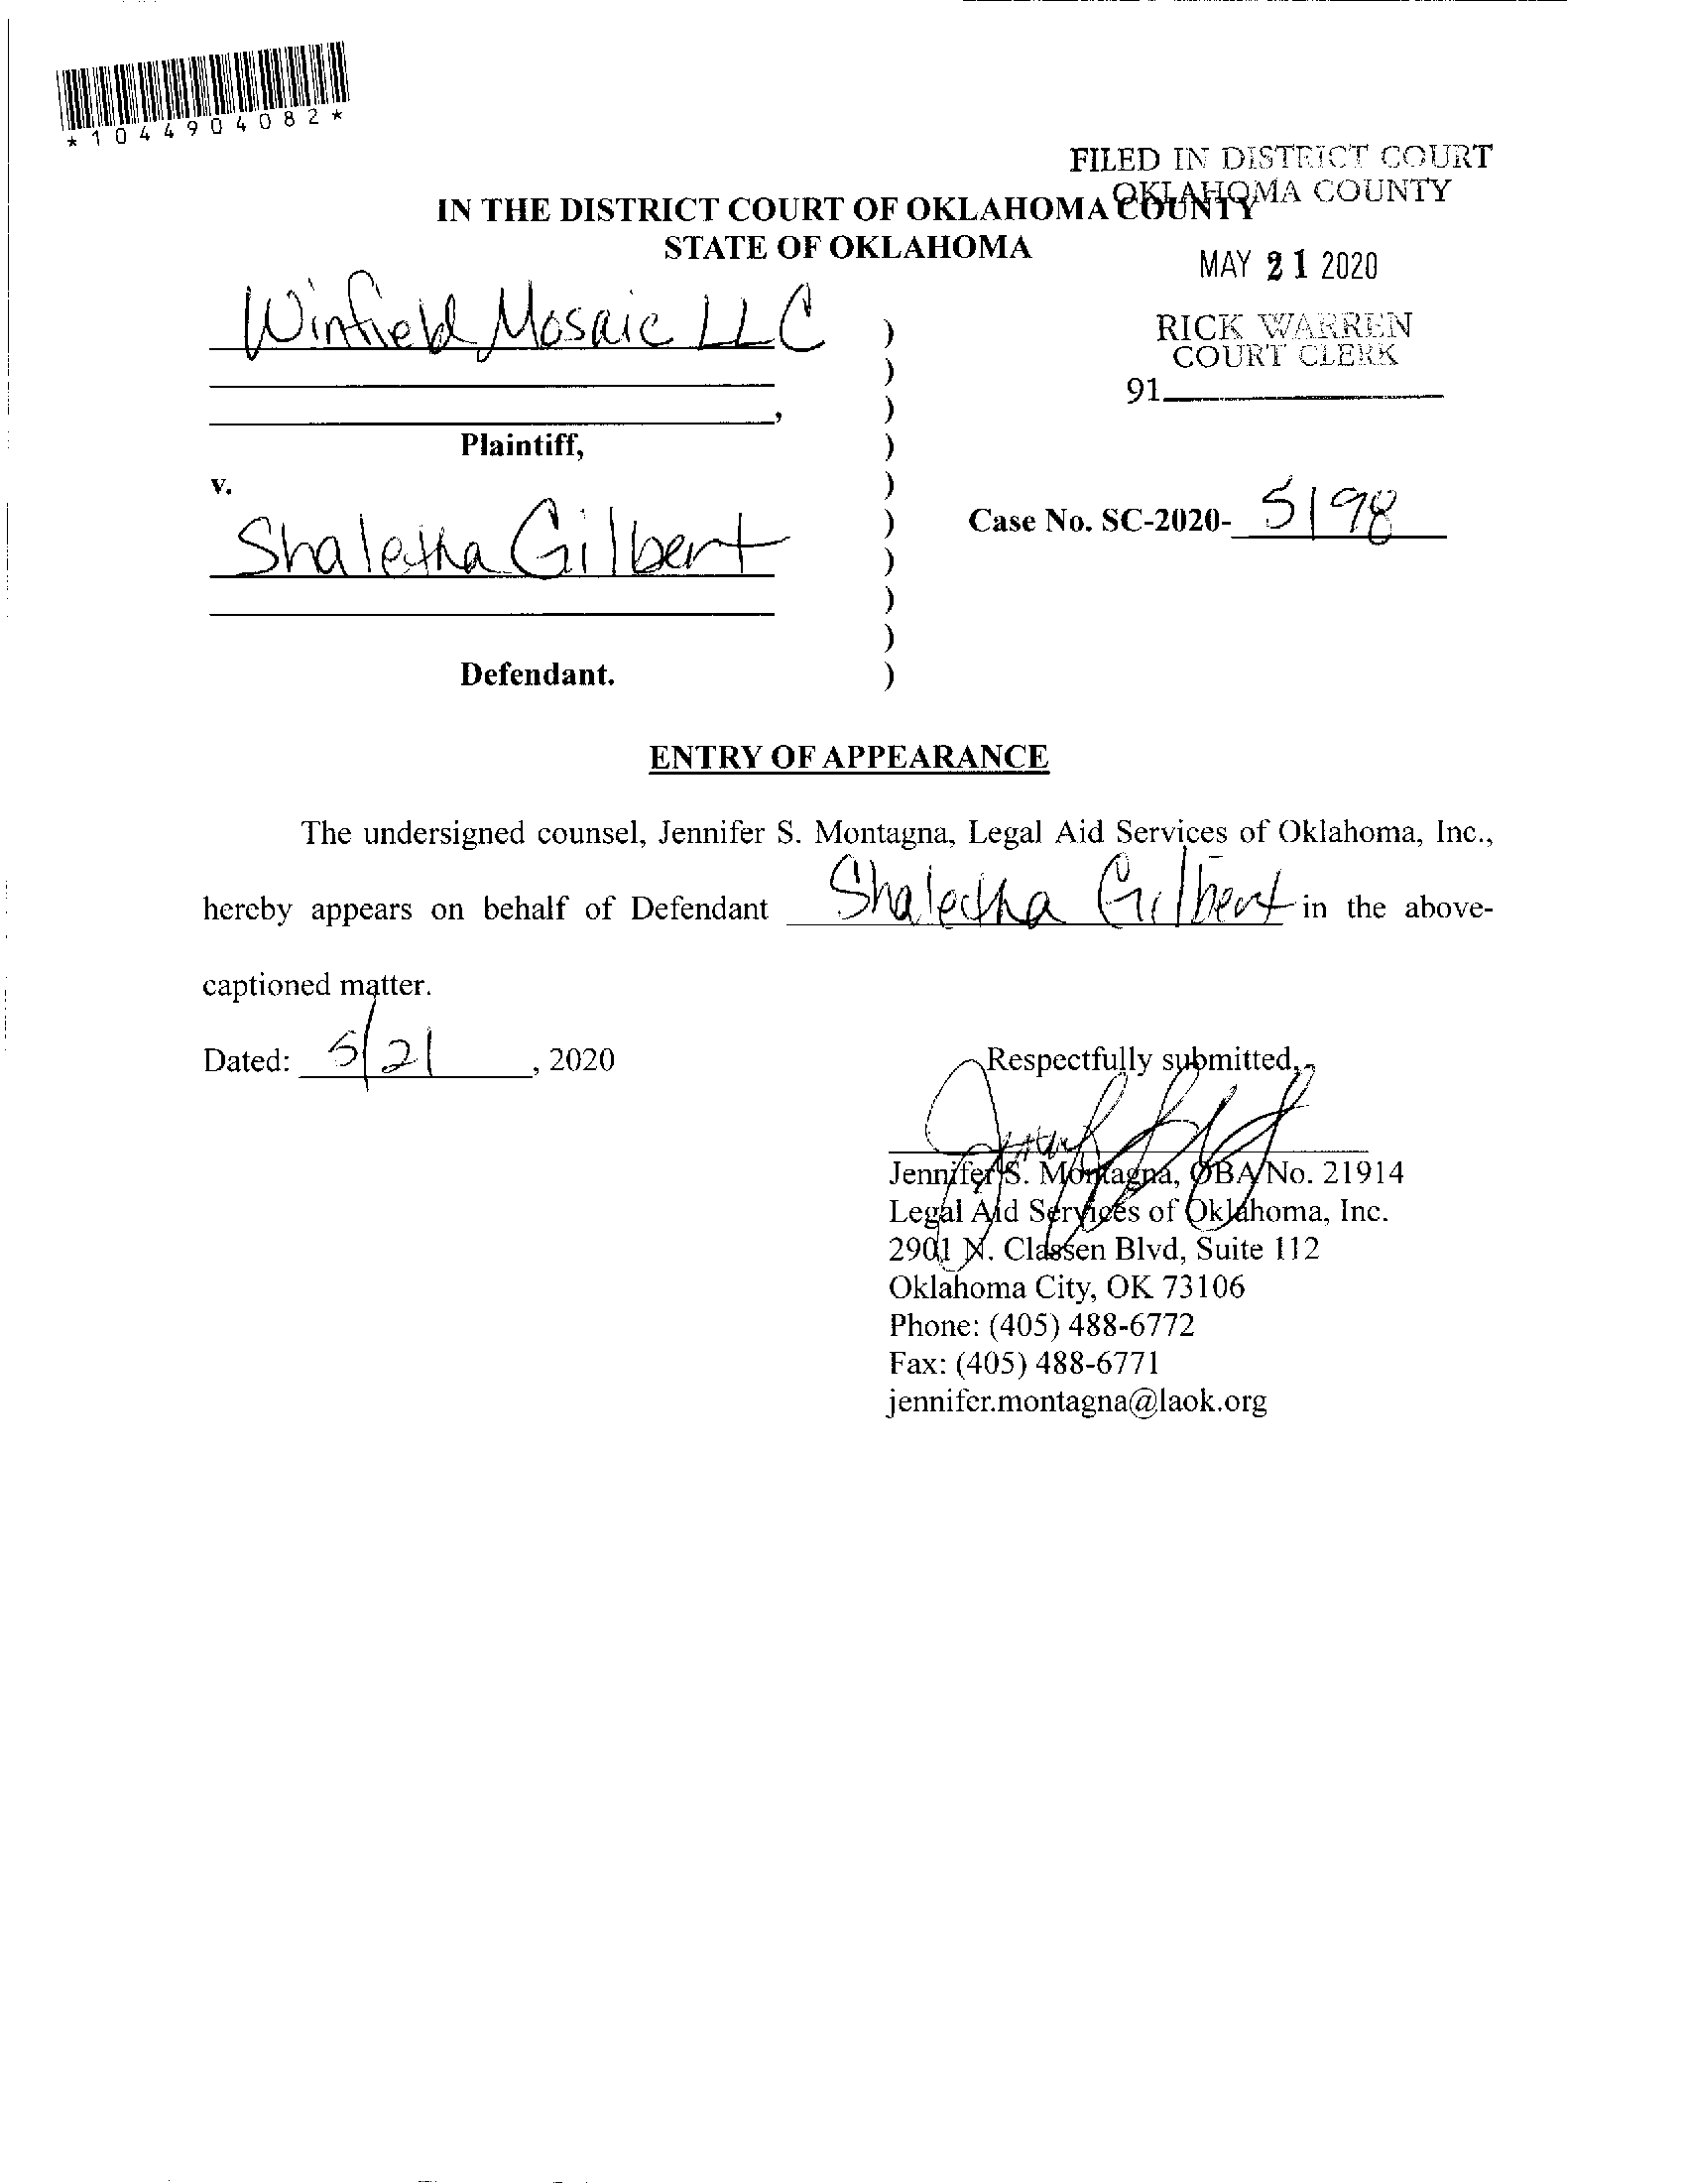 *1044904082*
FILED IN DISTRICT COURT
OKLAHOMA COUNTY
IN THE DISTRICT COURT OF OKLAHOMA COUNTY
STATE OF OKLAHOMA
MAY 21 2020
Winfield Mosaic LLC )
RICK WARREN
COURT CLERK
)
91
, )
Plaintiff, )
v. )
Shaletha Gilbert ) Case No. SC-2020- 5198
)
)
)
Defendant. )
ENTRY OF APPEARANCE
The undersigned counsel, Jennifer S. Montagna, Legal Aid Services of Oklahoma, Inc.,
hereby appears on behalf of Defendant Shaletha Gilbert in the above-
captioned matter.
Dated: 5/21, 2020
Respectfully submitted,
Jennifer S. Montagna, OBA No. 21914
Legal Aid Services of Oklahoma, Inc.
2901 N. Classen Blvd, Suite 112
Oklahoma City, OK 73106
Phone: (405) 488-6772
Fax: (405) 488-6771
jennifer.montagna@laok.org